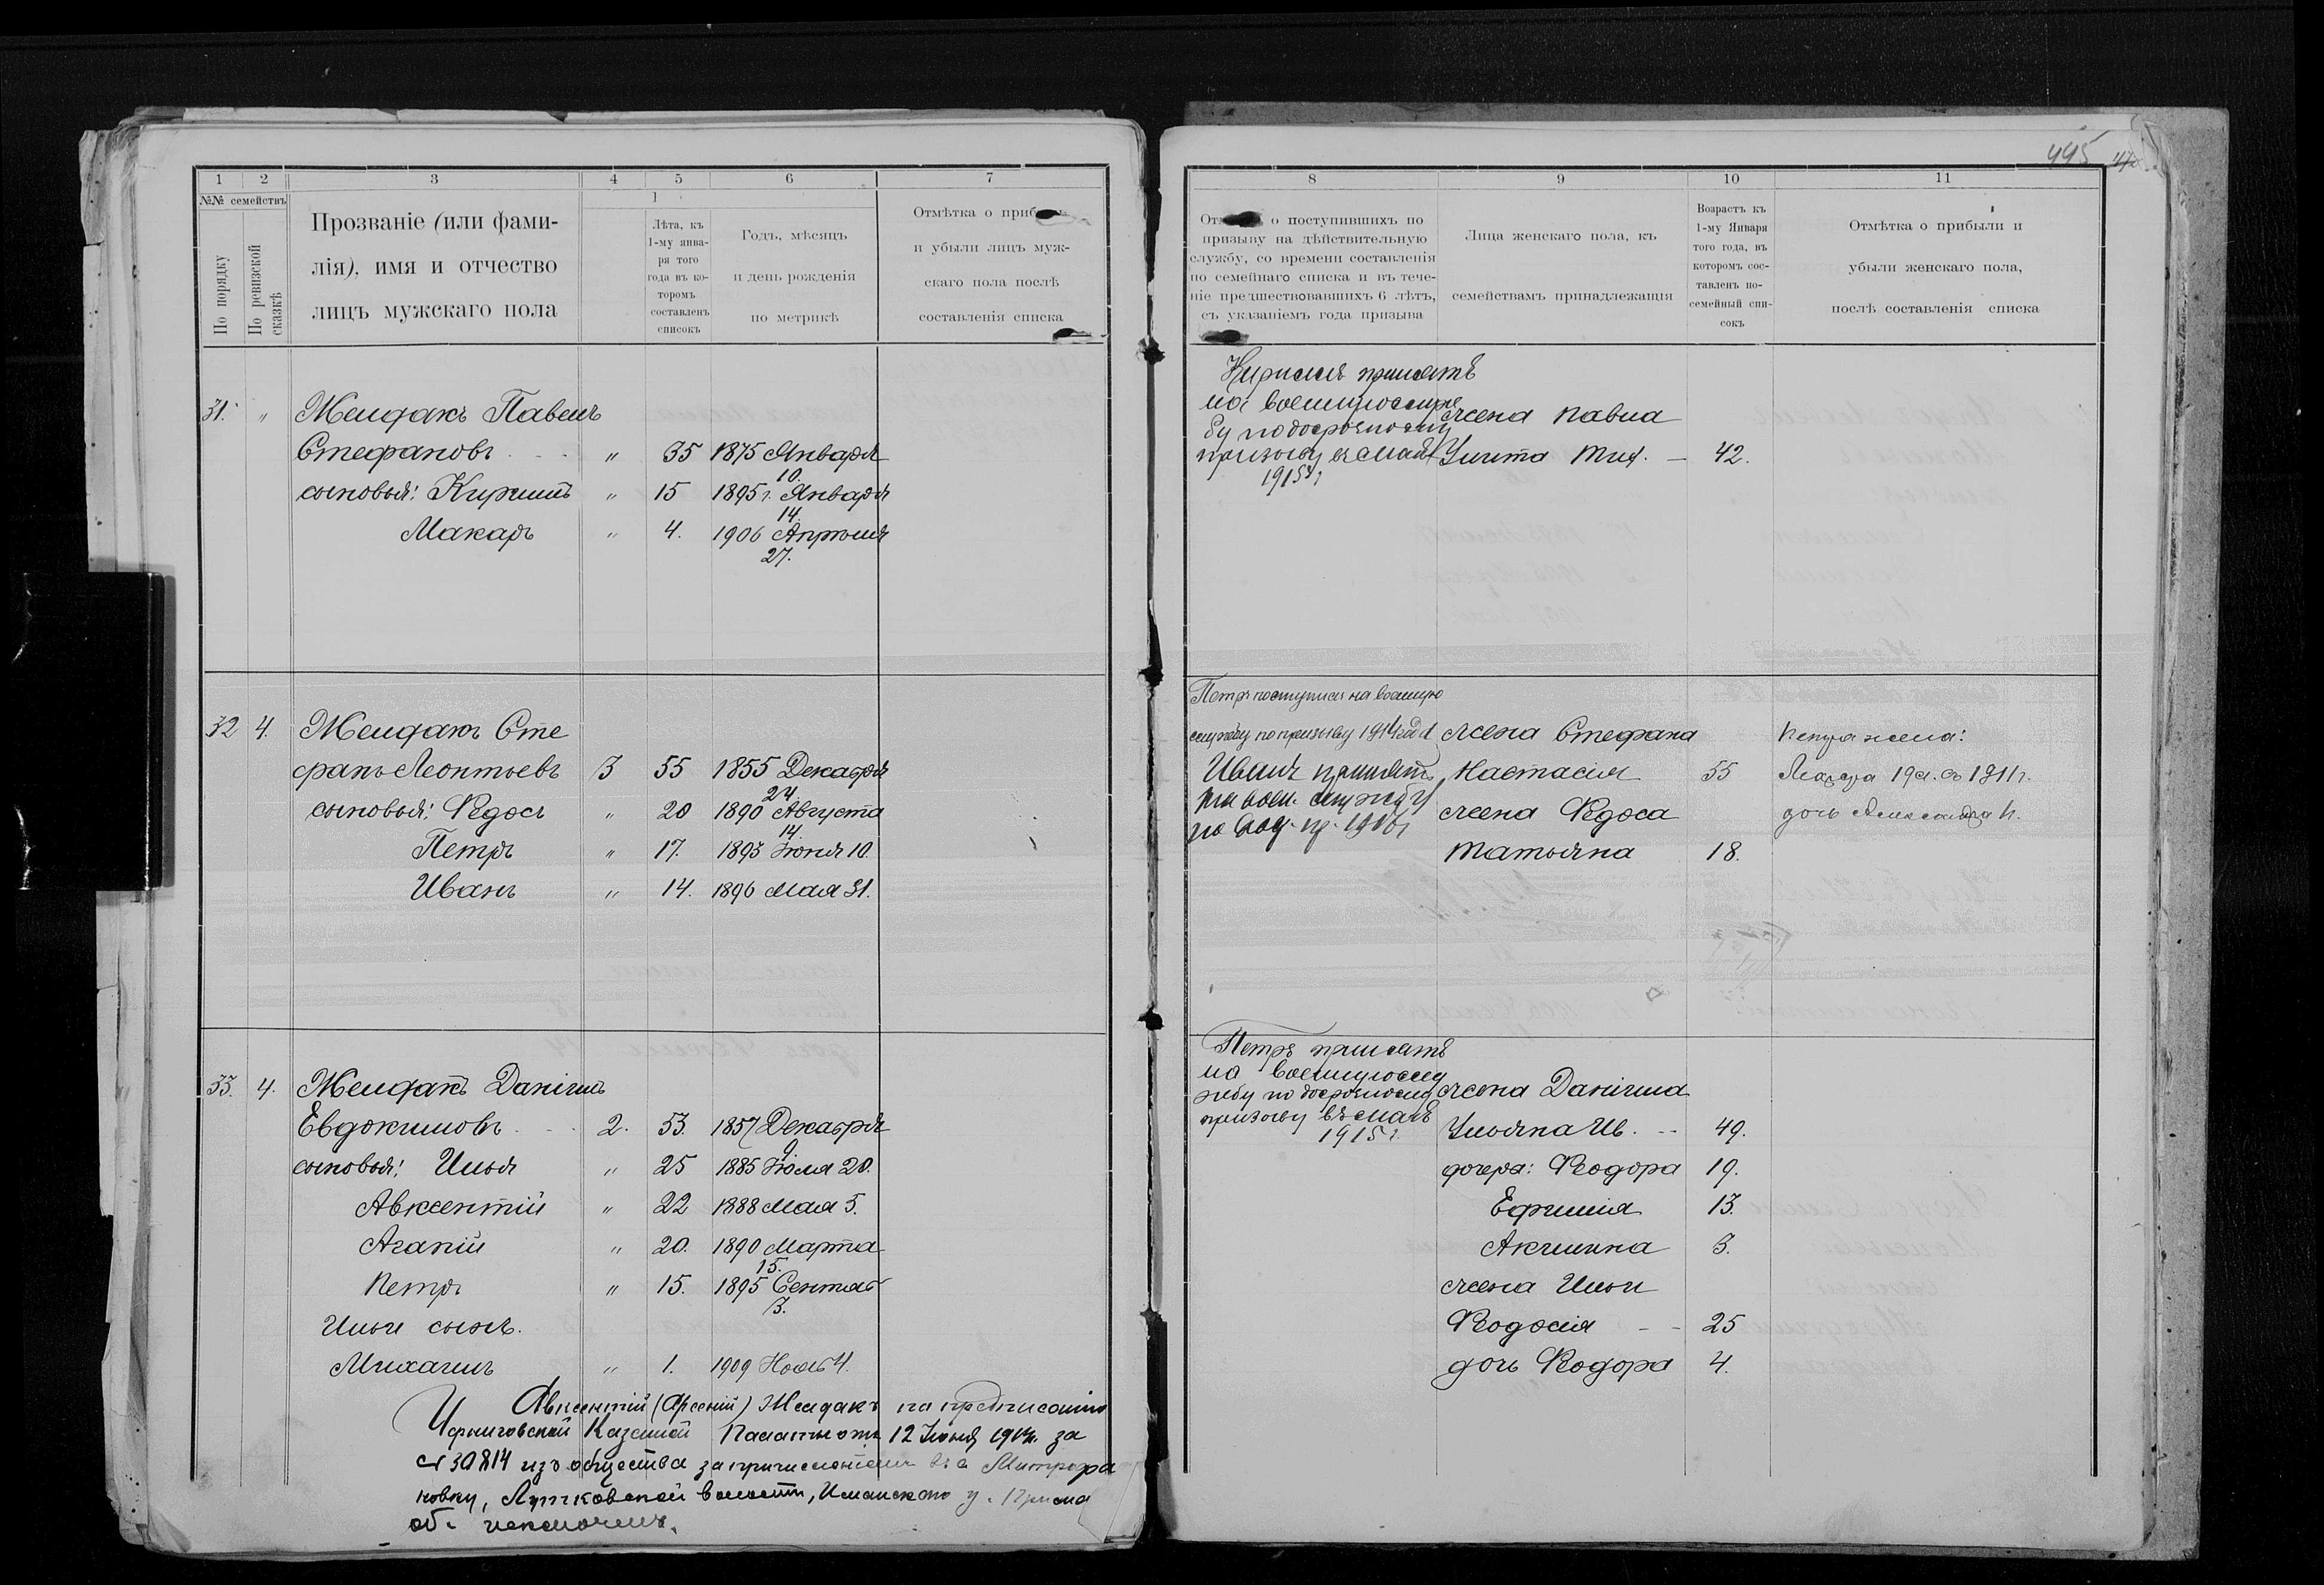 445
1 2 3 4 5 6 7
№№ семействъ
По порядку
По ревизской сказкѣ
Прозваніе (или фами-
лія), имя и отчество
лицъ мужскаго пола
Лѣта, къ
1-му янва-
ря того
года въ ко-
торомъ
составленъ
списокъ
Годъ, мѣсяцъ
и день рожденія
по метрикѣ
Отмѣтка о
и убыли лицъ муж-
скаго пола послѣ
составленія списка
31. " Желдакъ Павелъ
Стефановъ " 35 1875 Января
10.
сыновья: Кириллъ " 15 1895 г. Января
14.
Макаръ " 4. 1906 Апрѣля
27.
32 4. Желдакъ Сте
фанъ Леонтьевъ 3 55 1855 Декабря
24.
сыновья: Ѳедосъ " 20 1890 Августа
14.
Петръ " 17. 1893 Іюня 10.
Иванъ " 14. 1896 Мая 31.
33. 4. Желдакъ Даніилъ
Евдокимовъ 2. 53. 1857 Декабря
9.
сыновья: Илья " 25 1885 Іюля 20.
Авксентій " 22 1888 Мая 5.
Агапій " 20. 1890 Марта
15.
Петръ " 15. 1895 Сентяб
3.
Ильи сынъ.
Михаилъ " 1. 1909 Нояб 4.
Авксентій (Арсеній) Желдакъ по предписанію
Черниговской Казенной Палаты отъ 12 Іюня за
№ 30814 изъ общества за причисленіемъ въ с Митрофа
новку, волости, Иманскаго у. Примо
об. исключенъ.
8 9 10 11
о поступившихъ по
призыву на дѣйствительную
службу, со времени составленія
по семейнаго списка и въ тече-
ніе предшествовавшихъ 6 лѣтъ,
съ указаніемъ года призыва
Лица женскаго пола, къ
семействамъ принадлежащія
Возрастъ къ
1-му Января
того года, въ
которомъ сос-
тавленъ по-
семейный спи-
сокъ
Отмѣтка о прибыли и
убыли женскаго пола,
послѣ составленія списка
Кириллъ принятъ
на военную служ
бу по досрочному
призыву въ Маѣ
1915 г
жена Павла
Улита Тим. — 42.
Петръ поступилъ на военную
службу по призыву 1914 года
Иванъ принятъ
на воен. службу
по дос. пр.
жена Стефана
Настасія 55
жена Ѳедоса
Татьяна 18.
Петра жена:
19 л. съ 1911 г.
дочь Александра
Петръ принятъ
на военную слу
жбу по досрочному
призыву въ Маѣ
1915 г.
жена Даніила
Ульяна Ив. 49.
дочера: Ѳеодора 19.
Ефимія 13.
Акилина 3.
жена Ильи
Ѳеодосія 25
дочь Ѳеодора 4.